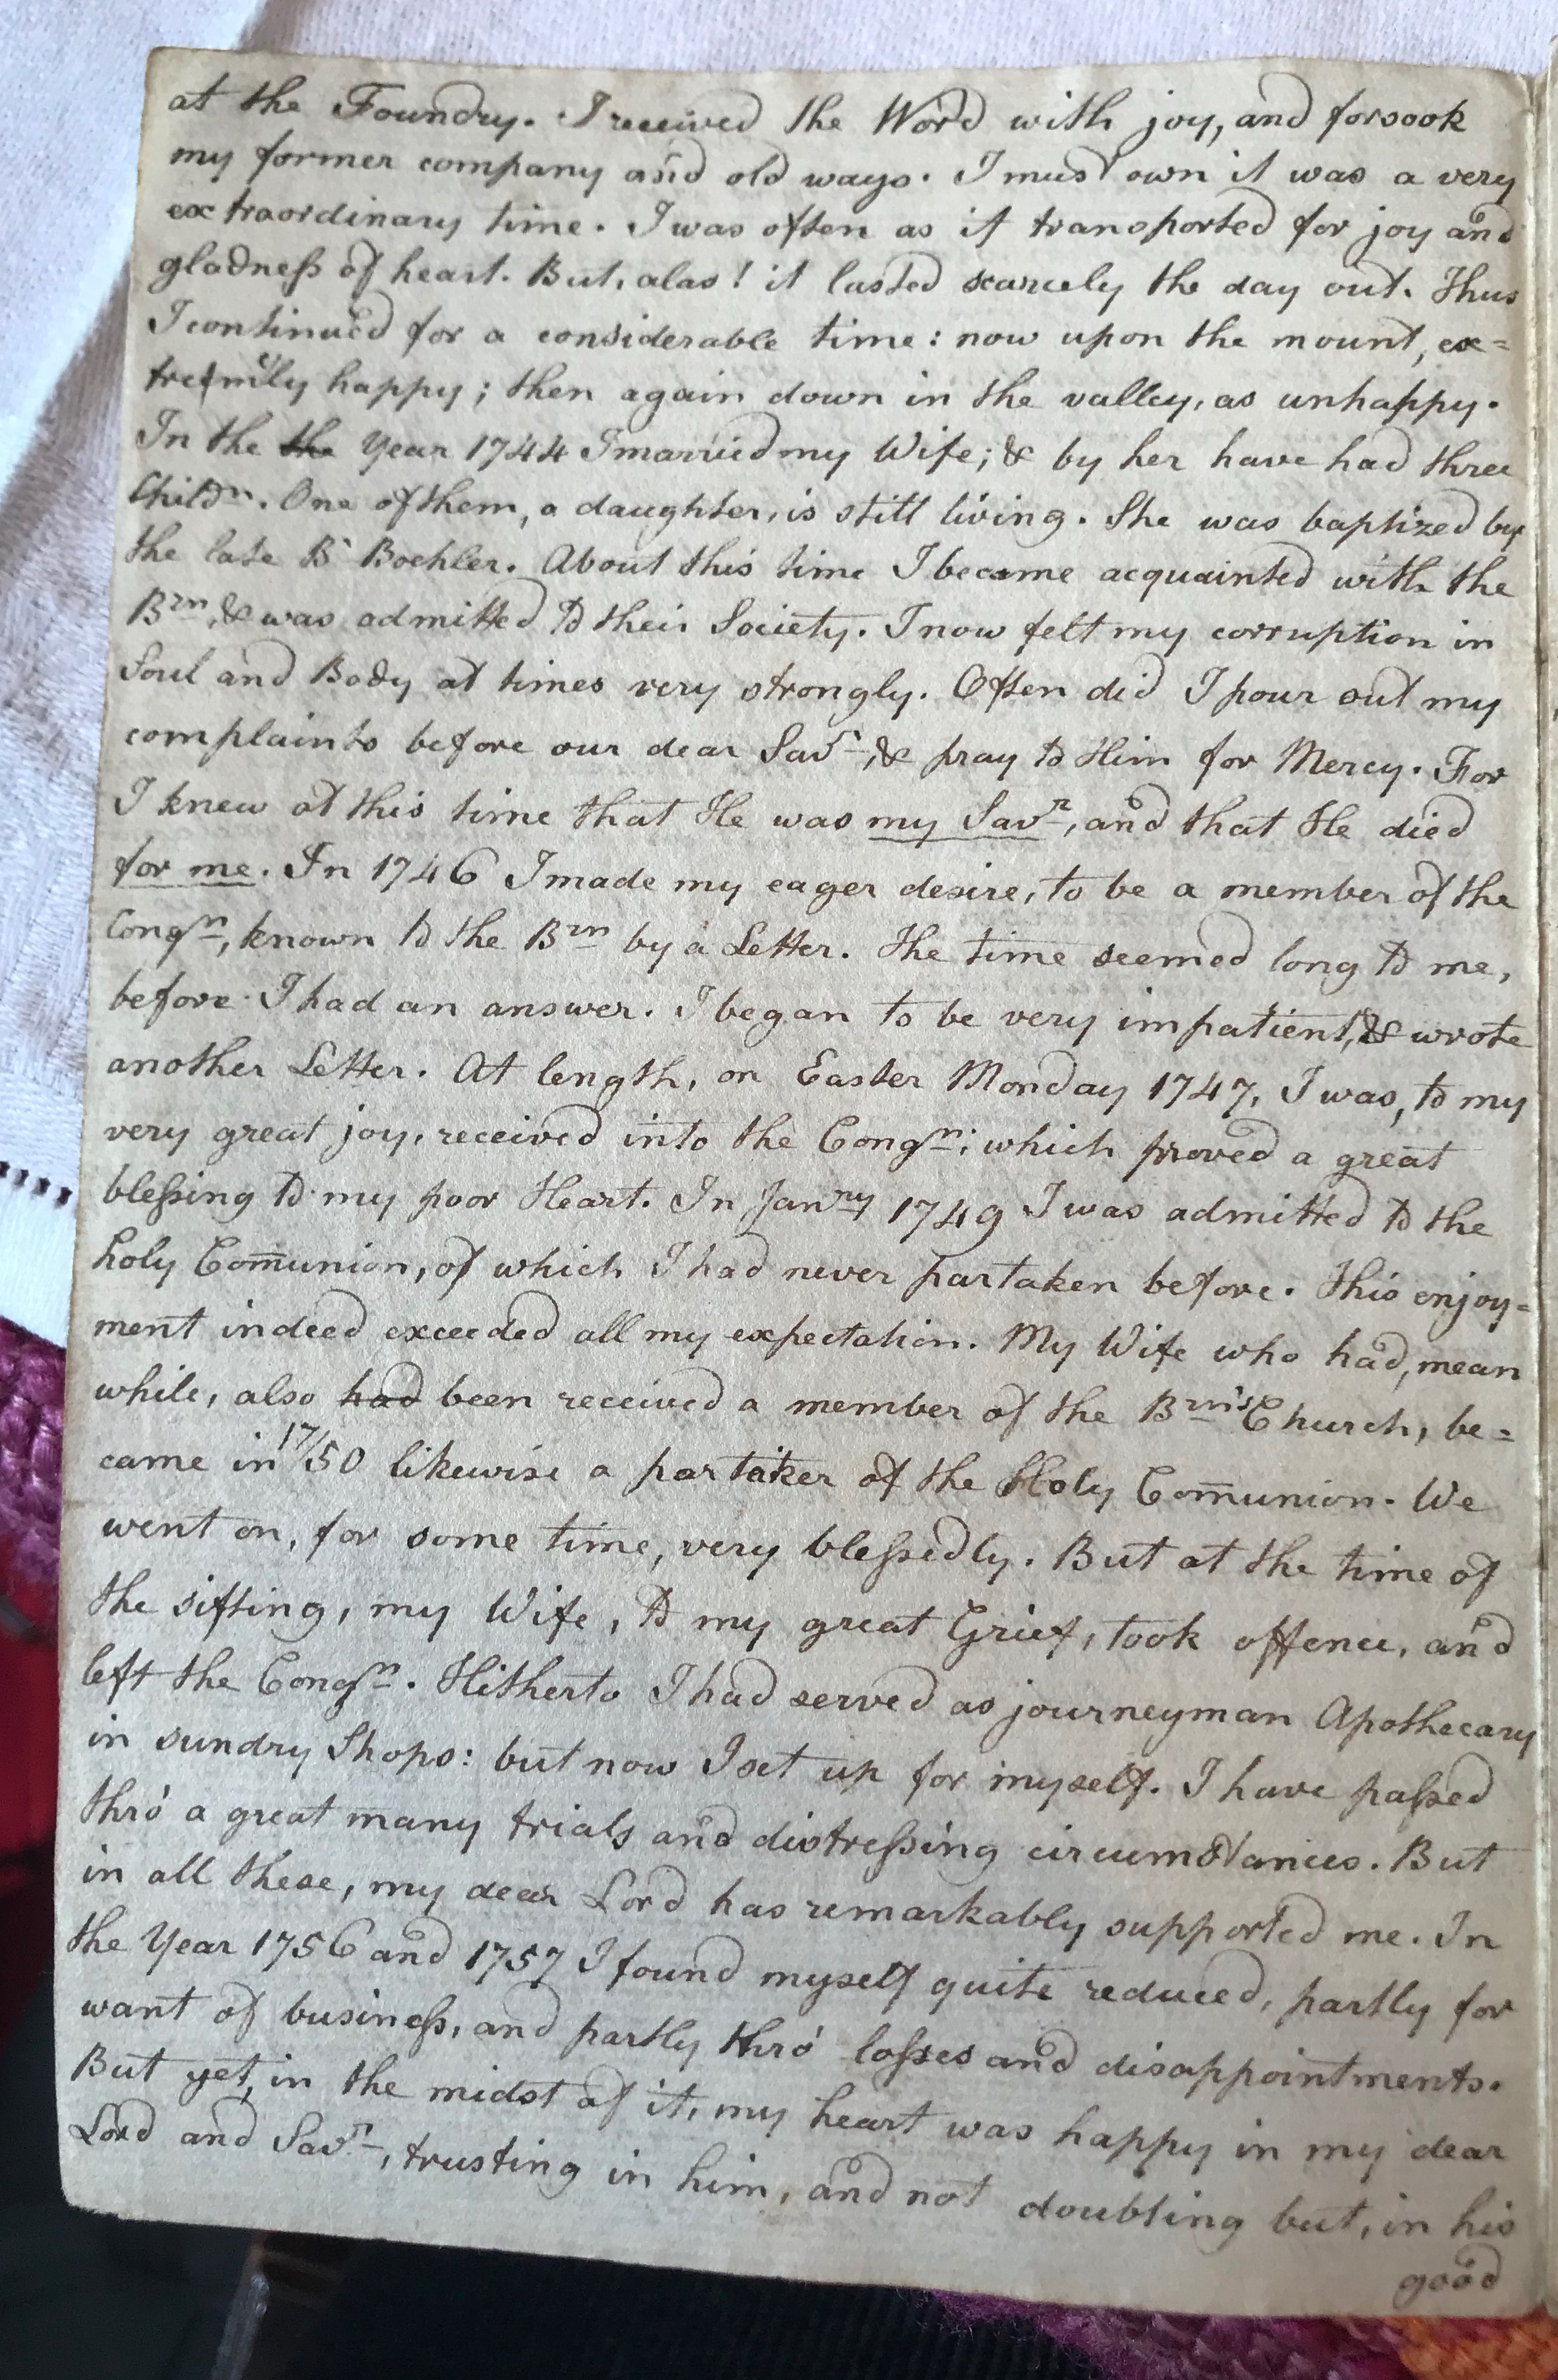 at the Foundry. I received the Word with joy, and forsook
my former company and old ways. I must own it was a very
extraordinary time. I was often as if transported for joy and
gladneſs of heart. But, alas! it lasted scarcely the day out. Thus
I continued for a considerable time: now upon the mount, ex=
tremely happy; then again down in the valley, as unhappy.
In the the Year 1744 I married my Wife; & by her have had three
Childn. One of them, a daughter, is still living. She was baptized by
the late Br Boehler. About this time I became acquainted with the
Brn, & was admitted to their Society. I now felt my corruption in
Soul and Body at times very strongly. Often did I pour out my
complaints before our dear Savr, & pray to Him for Mercy. For
I knew at this time that He was my Savr, and that He died
for me. In 1746 I made my eager desire, to be a member of the
Congn, known to the Brn by a Letter. The time seemed long to me,
before I had an answer. I began to be very impatient, & wrote
another Letter. At length, on Easter Monday 1747, I was, to my
very great joy, received into the Congn; which proved a great
bleſsing to my poor Heart. In Janry 1749 I was admitted to the
holy Com̄union, of which I had never partaken before. This enjoy=
ment indeed exceeded all my expectation. My Wife who had, mean
while, also had been received a member of the Brn's Church, be=
came in 17/50 likewise a partaker of the Holy Com̄union. We
went on, for some time, very bleſsedly. But at the time of
the sifting, my Wife, to my great Grief, took offence, and
left the Congn. Hitherto I had served as journeyman Apothecary
in sundry Shops: but now I set up for myself. I have paſsed
thro' a great many trials and distreſsing circumstances. But
in all these, my dear Lord has remarkably supported me. In
the Year 1756 and 1757 I found myself quite reduced, partly for
want of busineſs, and partly thro' loſses and disappointments.
But yet, in the midst of it, my heart was happy in my dear
Lord and Savr, trusting in him, and not doubting but, in his
good